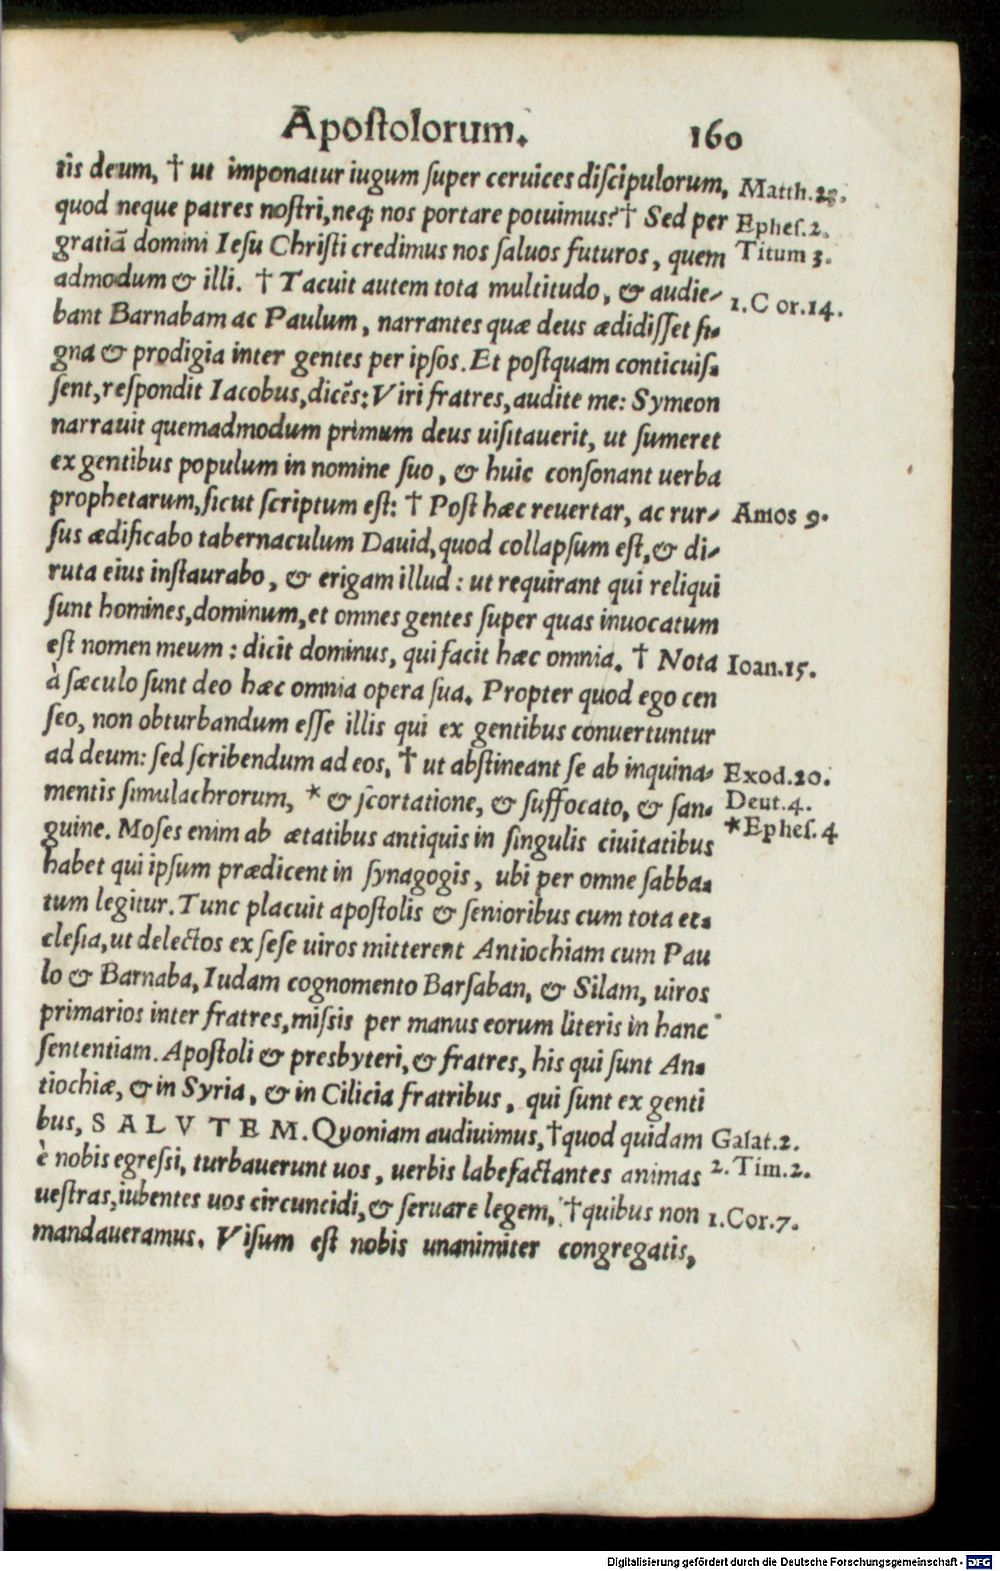 Apostolorum. 160
tis deum, † ut imponatur iugum super ceruices discipulorum, Matth.23.
quod neque patres nostri, neq; nos portare potuimus? † Sed per Ephes.2.
gratiā domini Iesu Christi credimus nos saluos futuros, quem Titum 3.
admodum & illi. † Tacuit autem tota multitudo, & audie- 1.Cor.14.
bant Barnabam ac Paulum, narrantes quæ deus ædidisset si-
gna & prodigia inter gentes per ipsos. Et postquam conticuis-
sent, respondit Iacobus, dicēs: Viri fratres, audite me: Symeon
narrauit quemadmodum primum deus uisitauerit, ut sumeret
ex gentibus populum in nomine suo, & huic consonant uerba
prophetarum, sicut scriptum est: † Post hæc reuertar, ac rur- Amos 9.
sus ædificabo tabernaculum Dauid, quod collapsum est, & di-
ruta eius instaurabo, & erigam illud: ut requirant qui reliqui
sunt homines, dominum, et omnes gentes super quas inuocatum
est nomen meum: dicit dominus, qui facit hæc omnia. † Nota Ioan.15.
à sæculo sunt deo hæc omnia opera sua. Propter quod ego cen
seo, non obturbandum esse illis qui ex gentibus conuertuntur
ad deum: sed scribendum ad eos, † ut abstineant se ab inquina- Exod.20.
mentis simulachrorum, * & scortatione, & suffocato, & san- Deut.4.
guine. Moses enim ab ætatibus antiquis in singulis ciuitatibus *Ephes.4
habet qui ipsum prædicent in synagogis, ubi per omne sabba-
tum legitur. Tunc placuit apostolis & senioribus cum tota ec-
clesia, ut delectos ex sese uiros mitterent Antiochiam cum Pau
lo & Barnaba, Iudam cognomento Barsaban, & Silam, uiros
primarios inter fratres, missis per manus eorum literis in hanc
sententiam. Apostoli & presbyteri, & fratres, his qui sunt An-
tiochiæ, & in Syria, & in Cilicia fratribus, qui sunt ex genti
bus, SALVTEM. Quoniam audiuimus, † quod quidam Galat.2.
è nobis egressi, turbauerunt uos, uerbis labefactantes animas 2.Tim.2.
uestras, iubentes uos circuncidi, & seruare legem, † quibus non 1.Cor.7.
mandaueramus. Visum est nobis unanimiter congregatis,
Digitalisierung gefördert durch die Deutsche Forschungsgemeinschaft - DFG